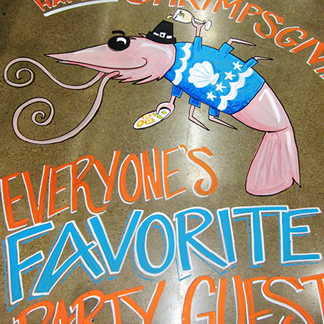 HAPPY SHRIMPSGIVI
EVERYONE'S
FAVORITE
PARTY GUEST